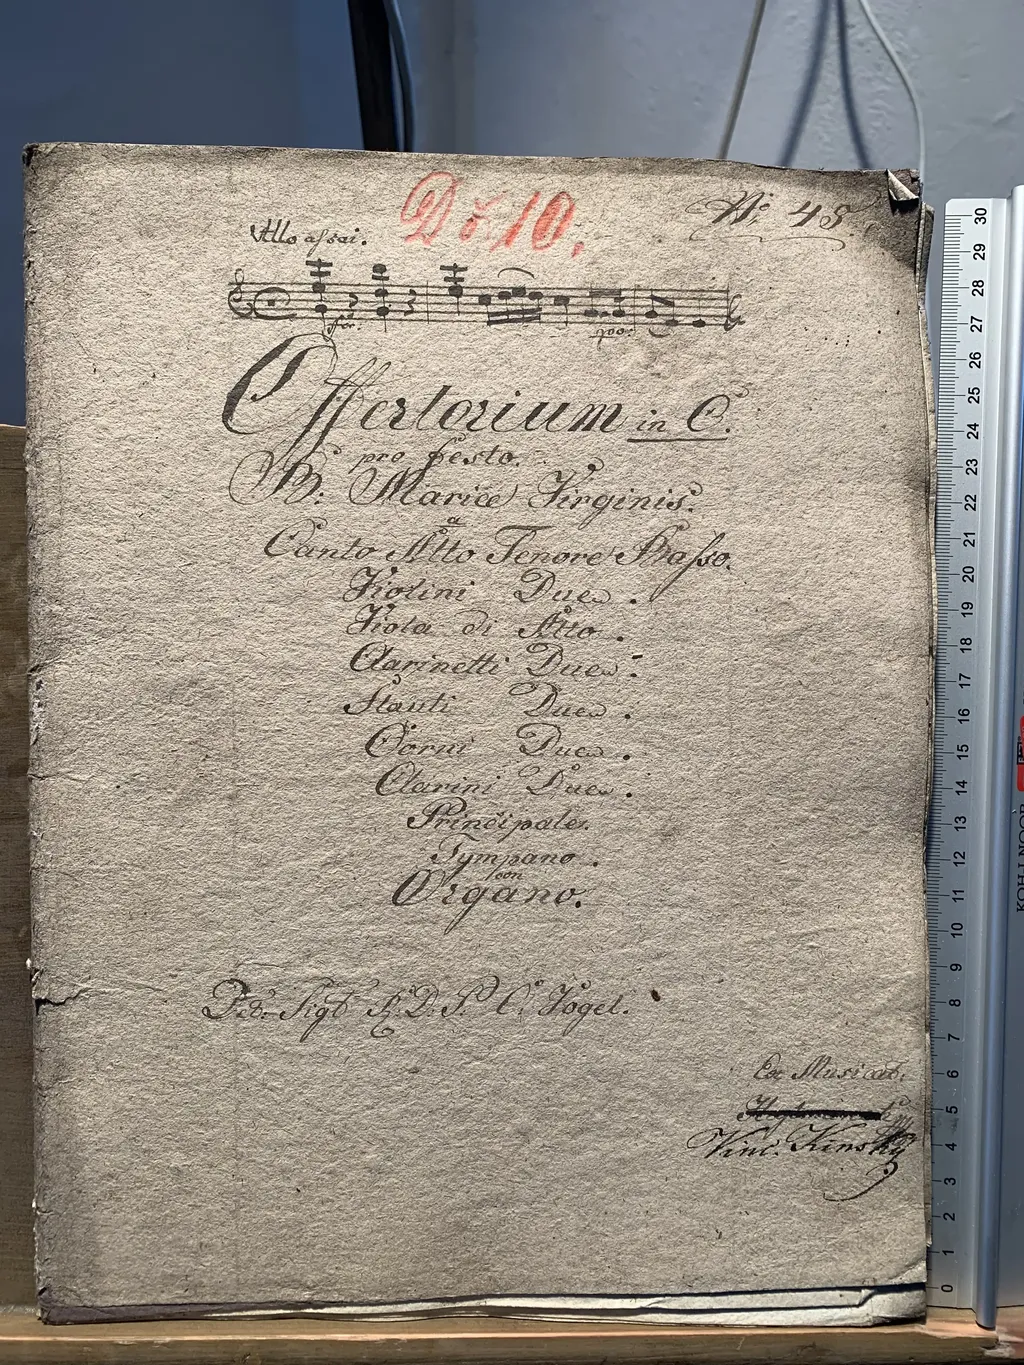 Dӗ 10.
No 45
Allo assai.
for:
poo:
Offertorium in C.
pro festo.
B: Mariæ Virginis.
a
Canto Alto Tenore Basso.
Violini Due.
Viola di Alto.
Clarinetti Due.
Flauti Due.
Corni Due.
Clarini Due.
Principale.
Tympano.
con
Organo.
Del Sigl R. D. P. C. Vogel.
Ex Musical:
Vinc. Kinsky
30
29
28
27
26
25
24
23
22
21
20
19
18
17
16
15
14
13
12
11
10
9
8
7
6
5
4
3
2
1
0
KOH-I-NOOR